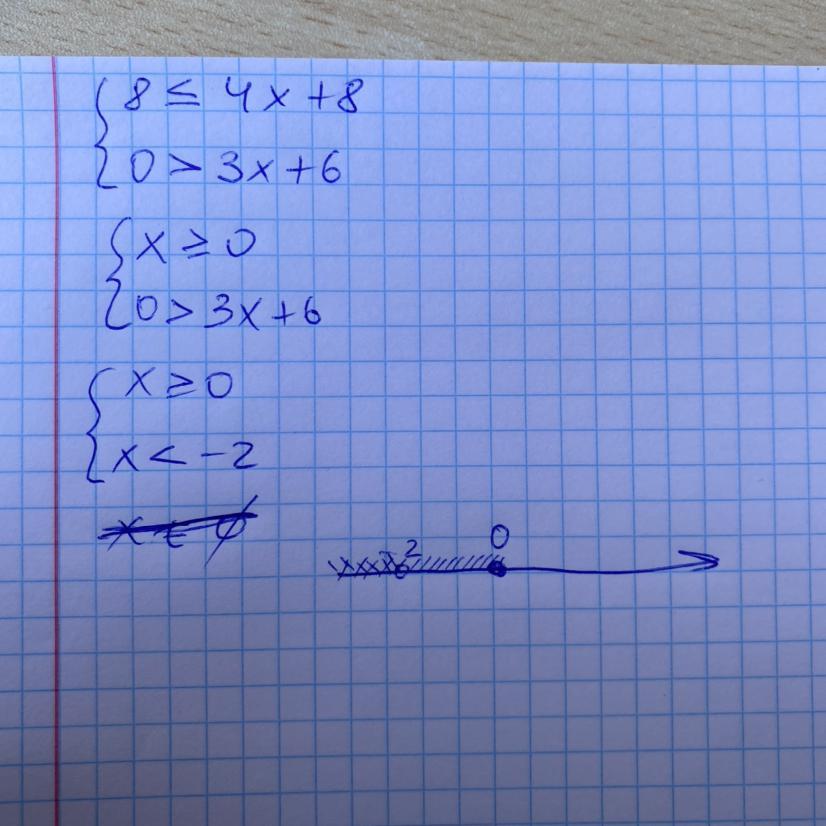 8 ≤ 4x + 8
0 > 3x + 6
x ≥ 0
0 > 3x + 6
x ≥ 0
x < -2
x ∈ ∅
2 0